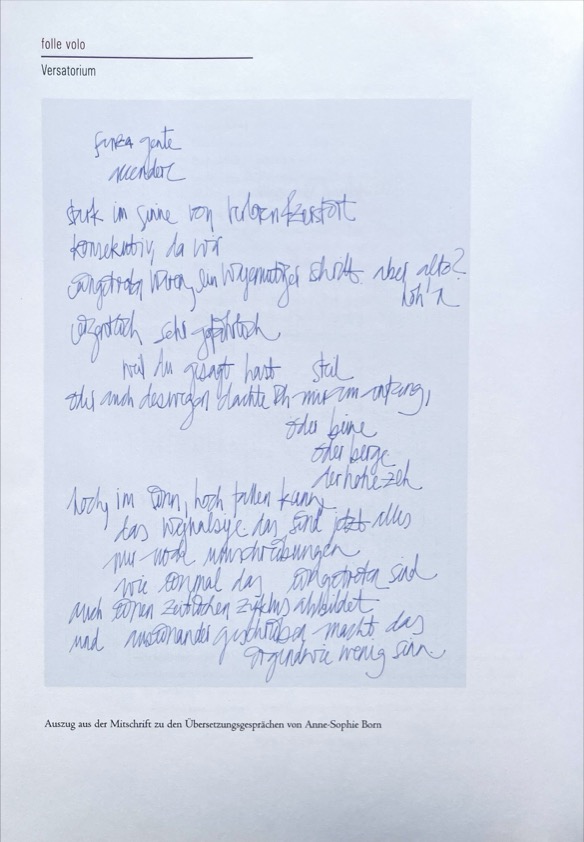 folle volo
Versatorium
gente
accendere
stark im sinne von
konsekutiv, da wir
ein schritt. aber alto?
sehr gefährlich
weil du gesagt hast steil
oder auch deswegen dachte ich mir am anfang,
oder beine
oder berge
der hohe zeh
hoch im sinn, hoch fallen kann,
das das sind jetzt alles
nur noch umschreibungen
wie einmal das eingetreten sind
auch einen zeitlichen zyklus abbildet
und auseinander geschrieben macht das
irgendwie wenig sinn.
Auszug aus der Mitschrift zu den Übersetzungsgesprächen von Anne-Sophie Born